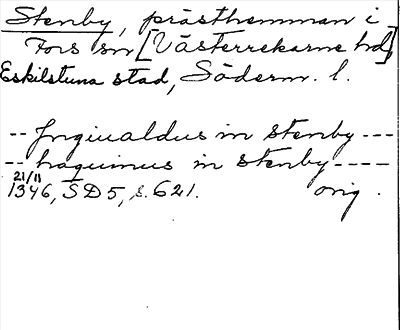 Stenby, prästhemman i
Fors sn [Västerrekarne hd],
Eskilstuna stad, Söderm. l.
-- Jngiualdus in stenby ---
-- haquinus in stenby ----
21/11
1346, SD 5, s. 621. orig.